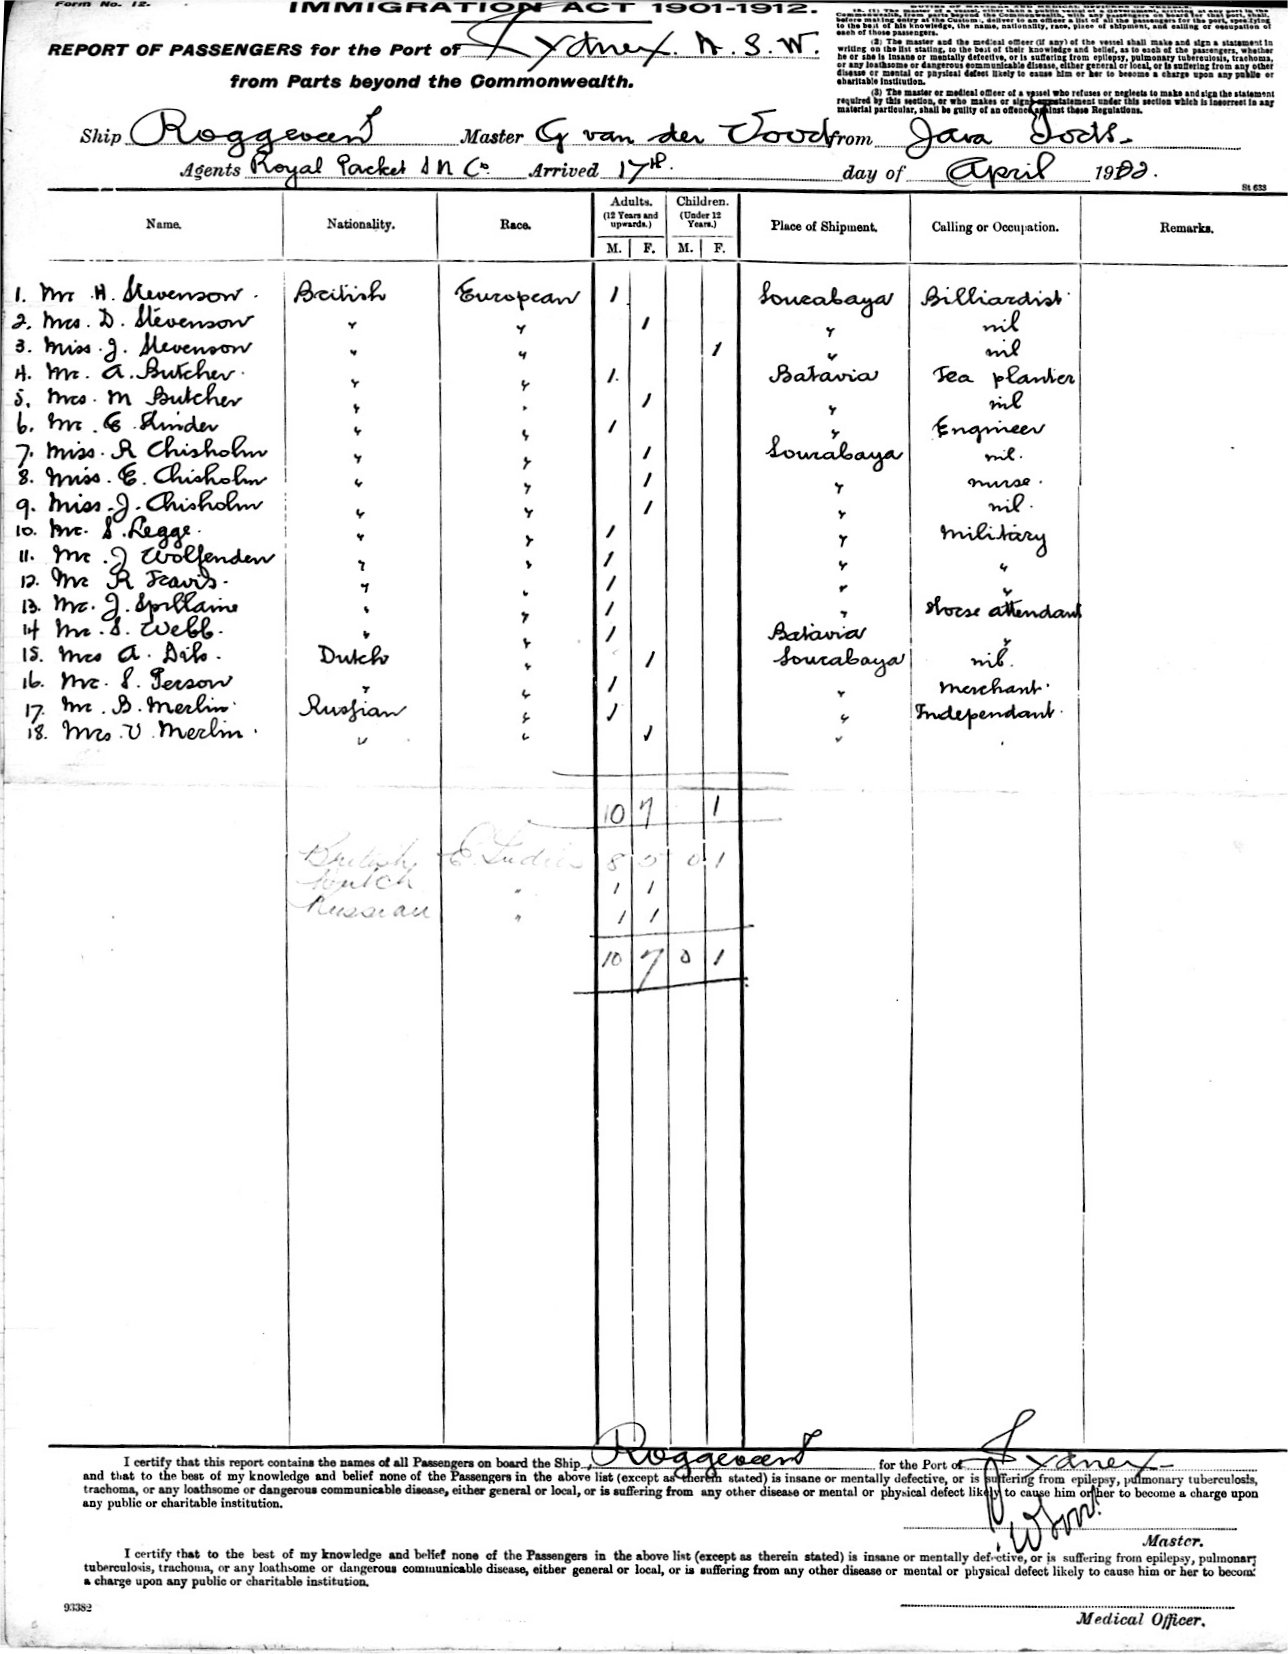 Form No. 12.
IMMIGRATION ACT 1901-1912.
REPORT OF PASSENGERS for the Port of Sydney. N. S. W.
from Parts beyond the Commonwealth.
Commonwealth, from parts beyond the Commonwealth, with any passengers on board for that port, shall,
before making entry at the Customs, deliver to an officer a list of all the passengers for the port, specifying
to the best of his knowledge, the name, nationality, race, place of shipment, and calling or occupation of
each of those passengers.
(2) The master and the medical officer (if any) of the vessel shall make and sign a statement in
writing on the list stating, to the best of their knowledge and belief, as to each of the passengers, whether
he or she is insane or mentally defective, or is suffering from epilepsy, pulmonary tuberculosis, trachoma,
or any loathsome or dangerous communicable disease, either general or local, or is suffering from any other
disease or mental or physical defect likely to cause him or her to become a charge upon any public or
charitable institution.
(3) The master or medical officer of a vessel who refuses or neglects to make and sign the statement
required by this section, or who makes or signs a statement under this section which is incorrect in any
material particular, shall be guilty of an offence against these Regulations.
Ship Roggeveen Master G van der Vood from Java Ports.
Agents Royal Packet S N Co. Arrived 17th. day of April 1922.
St 633
Name. Nationality. Race. Adults. (12 Years and upwards.) M. F. Children. (Under 12 Years.) M. F. Place of Shipment. Calling or Occupation. Remarks.
1. Mr H. Stevenson. British European 1 Sourabaya Billiardist
2. Mrs. D. Stevenson " " 1 " nil
3. Miss. J. Stevenson " " 1 " nil
4. Mr. A. Butcher. " " 1. Batavia Tea planter
5. Mrs. M Butcher " " 1 " nil
6. Mr. E. " " 1 " Engineer
7. Miss. R Chisholm " " 1 Sourabaya nil.
8. Miss. E. Chisholm " " 1 " nurse.
9. Miss. J. Chisholm " " 1 " nil.
10. Mr. S. Legge. " " 1 " Military
11. Mr. J Wolfenden " " 1 " "
12. Mr R Travis. " " 1 " "
13. Mr. J. Spillaine " " 1 " Horse attendant
14 Mr. S. Webb. " " 1 Batavia "
15. Mrs A. Dito. Dutch " 1 Sourabaya nil.
16. Mr. S. Person " " 1 " Merchant.
17. Mr. B. Merlin. Russian " 1 " Independant.
18. Mrs. V. Merlin. " " 1 "
10 7 1
British E. Indies 8 5 0 1
Dutch " 1 1
Russian " 1 1
10 7 0 1
I certify that this report contains the names of all Passengers on board the Ship Roggeveen for the Port of Sydney
and that to the best of my knowledge and belief none of the Passengers in the above list (except as therein stated) is insane or mentally defective, or is suffering from epilepsy, pulmonary tuberculosis,
trachoma, or any loathsome or dangerous communicable disease, either general or local, or is suffering from any other disease or mental or physical defect likely to cause him or her to become a charge upon
any public or charitable institution.
Master.
I certify that to the best of my knowledge and belief none of the Passengers in the above list (except as therein stated) is insane or mentally defective, or is suffering from epilepsy, pulmonary
tuberculosis, trachoma, or any loathsome or dangerous communicable disease, either general or local, or is suffering from any other disease or mental or physical defect likely to cause him or her to become
a charge upon any public or charitable institution.
93382
Medical Officer.